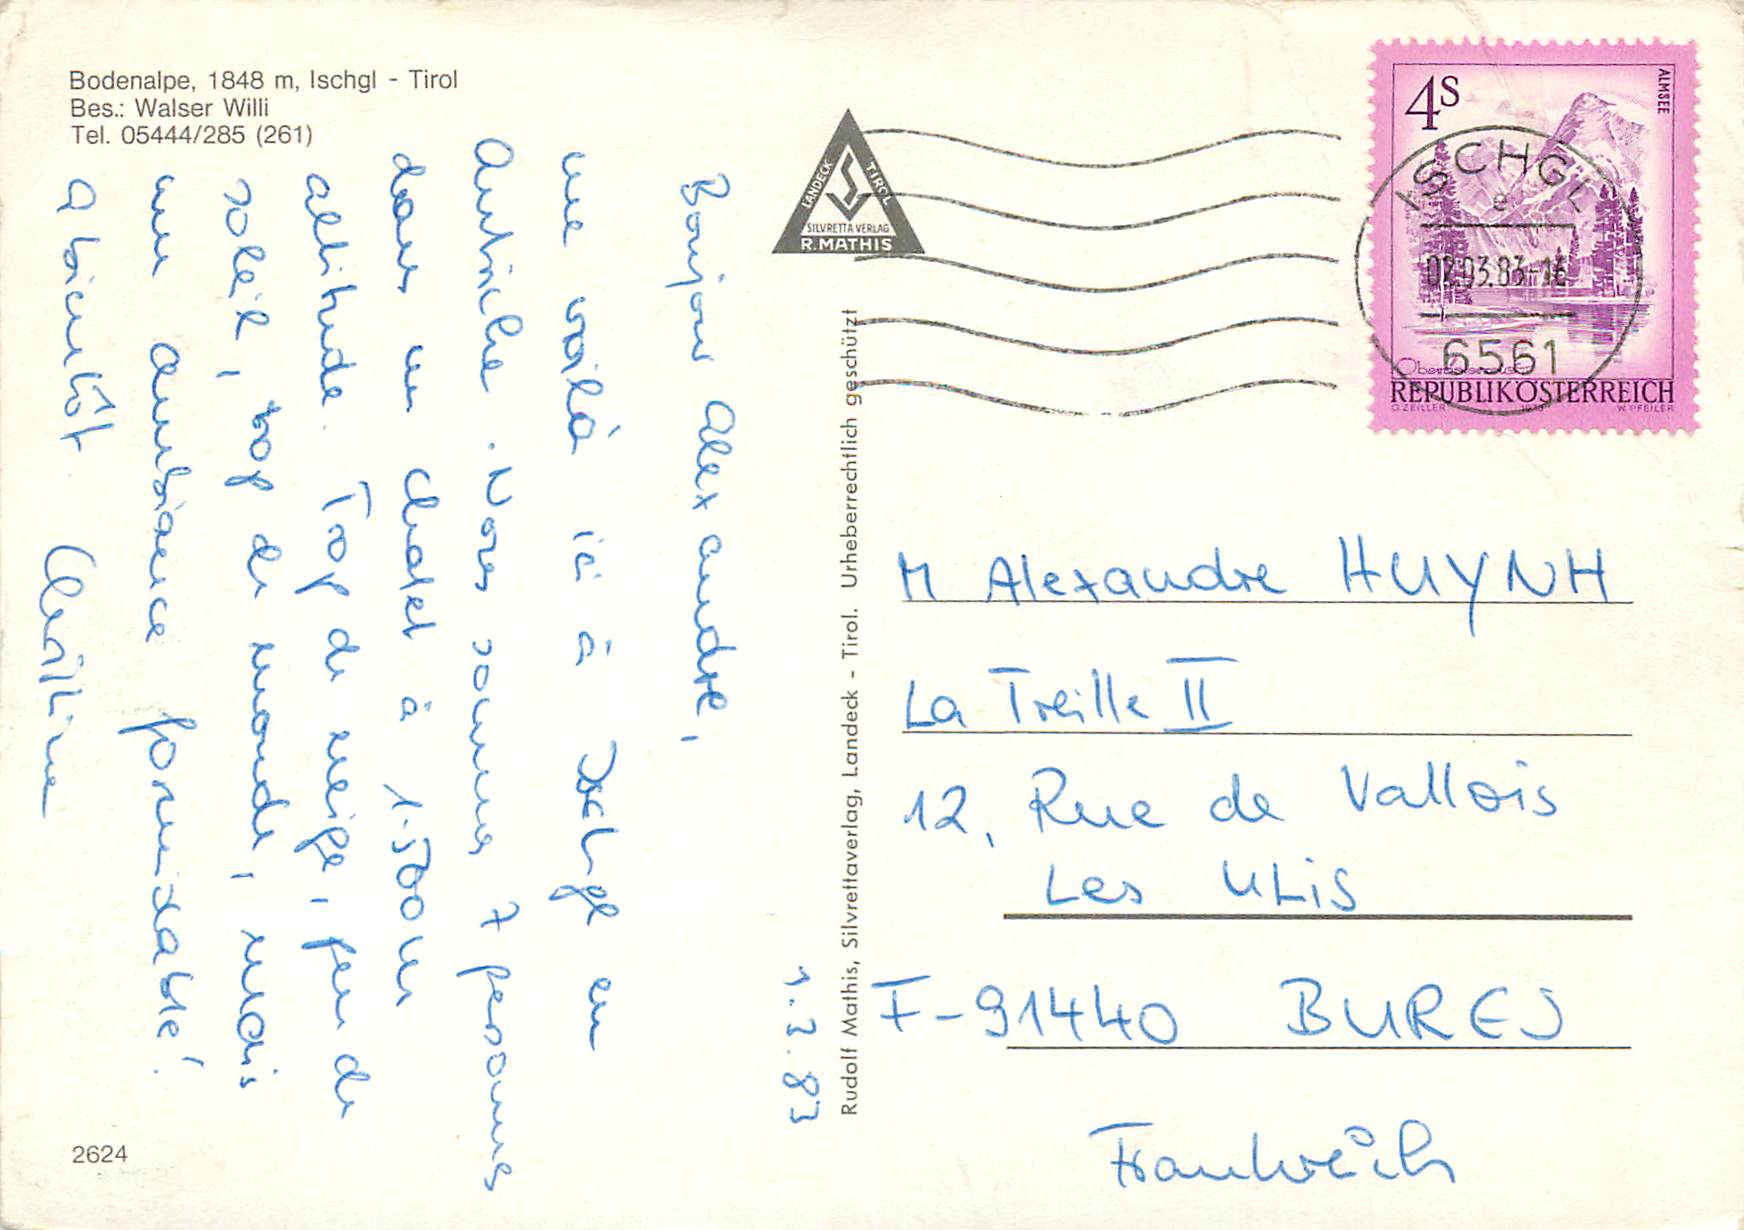 Bodenalpe, 1848 m, Ischgl - Tirol
Bes.: Walser Willi
Tel. 05444/285 (261)
1.3.83
Bonjour Alexandre,
me voilà ici à Ischgl en
Autriche. Nous sommes 7 personnes
dans un chalet à 1.500 m
altitude. Trop de neige, peu de
soleil, trop de monde, mais
une ambiance formidable!
A bientôt Christine
2624
LANDECK TIROL
SILVRETTA VERLAG
R. MATHIS
Rudolf Mathis, Silvrettaverlag, Landeck - Tirol. Urheberrechtlich geschützt
4S
ALMSEE
REPUBLIK ÖSTERREICH
O. ZEILLER
W. PFEILER
ISCHGL
e
02.03.83-16
6561
M Alexandre HUYNH
La Treille II
12, Rue de Vallois
Les ULiS
F-91440 BURES
Frankreich